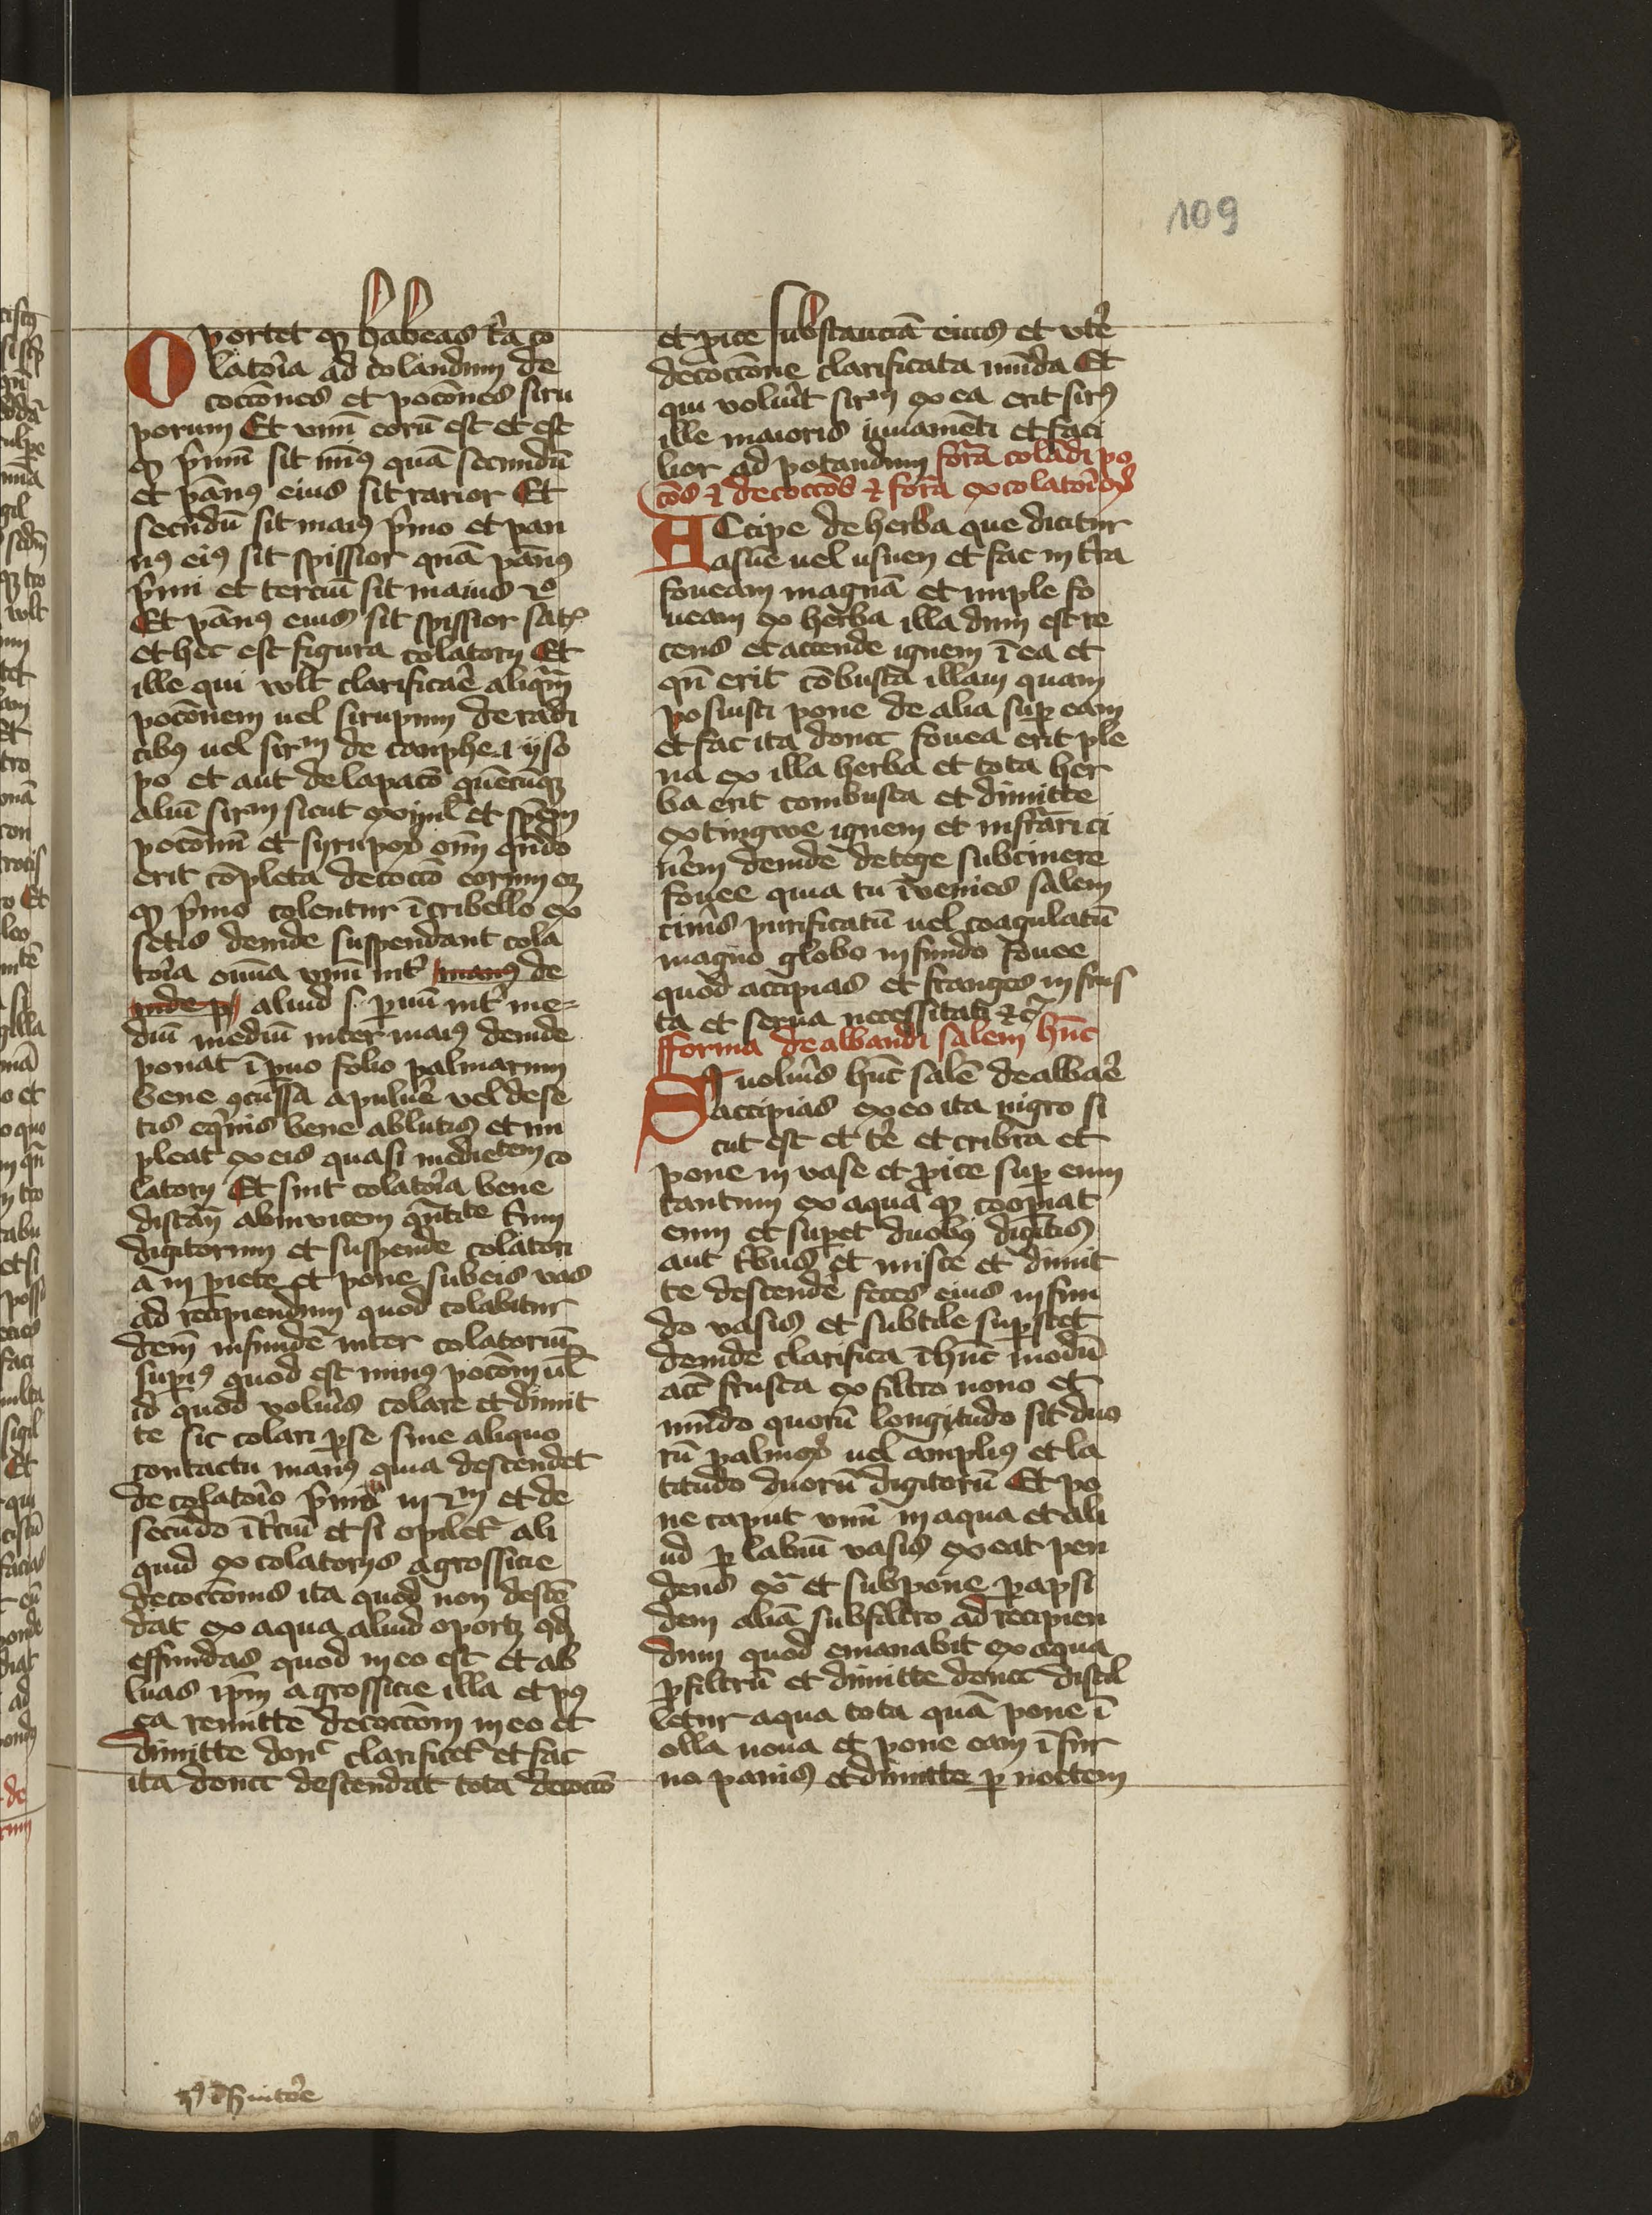 109
Oportet qꝫ habeas t̾a co
latoria ad colandum de
coctōnes et pocōnes siru
porum Et vnū eorū est et est
qꝫ p̾mū sit min9 quā secundū
et pān9 eius sit rarior Et
secūdū sit mai9 p̾mo et pan
n9 ei9 sit spissior quā pān9
p̾mi et terciū sit maius 2o
Et pān9 eius sit spissior
et hec est figura colatorij Et
ille qui vult clarificare aliquam
pocōnem uel sirupum de radi
cib9 uel sir̄m de
po et aut de lapacō quēcūqꝫ
aliū sirm sicut et spēm
pocōnū et syrupoꝝ oīm qn̄do
erit cōpleta decoctō eorum
qꝫ p̾mo colentur ī cribello ex
setis deinde suspendant cola
toria omnia vnū int̾ de
aliud s. paruū int̾ me=
diū mediū inter mai9 deinde
ponat ī vno folio palmarum
bene a puluere vel de se
tis equinis bene ablutis et im
pleat ex eis quasi medietem co
latorij Et sint colatoria bene
distan̄ abinuicem trium
digitorum et suspende colatori
a in pariete et pone sub eis vas
ad recipiendum quod colabitur
dein̄ infunde inter colatoriū
superi9 quod est min9 pocōnem uel
id quod volueris colare et dimit
te sic colari per se sine aliquo
contactu man9 quia descendet
de colatorio p̾mo in 2m et de
secūdo ī t̾ciū et si opilet̾ ali
quid ex colatorijs a grossicie
decoctōnis ita quod non descē
dat ex aqua aliud oportꝫ
effundas quod in eo est et ab
luas ip̄m a grossicie illa et post
ea remitte decoctōem in eo et
dimitte donec clarificet̾ et fac
ita donec descendat tota decoctō
et proice substanciā eius et vtere
decoctōne clarificata mūda Et
qui voluerit sirm ex ea erit sir9
ille maioris iuuamēti et faci
lior ad potandum forā colādi po
cōes et decoctōes et forā ex colatorioꝝ
ACcipe de herba que dicitur
asuie uel usnen et fac in t̾ra
foueam magnā et imple fo
ueam ex herba illa dum est re
cens et accende ignem ī ea et
qn̄ erit cōbusta illam quam
posuisti pone de alia super eam
et fac ita donec fouea erit ple
na ex illa herba et tota her
ba erit combusta et dimitte
extingwe ignem et infrigidari ci
nerem deinde detege sub cinere
fouee quia tu īvenies salem
cineris purificatū uel coagulatū
magno globo in fundo fouee
quod accipias et franges in frus
ta et serua necessitati etc̄
fforma dealbandi salem hunc
SI uolueris hūc salē dealbare
accipias ex eo ita nigro si
cut est et tere et cribra et
pone in vase et proice super eum
tantum ex aqua qꝫ cooperiat
eum et superet duob9 digitis
aut tribus et misce et dimit
te descendere feces eius in fun
do vasis et subtile superstet
deinde clarifica ī hūc modū
acc̄ frusta ex filtro nouo et
mūdo quorū longitudo sit duo
rū palmoꝝ uel ampli9 et la
titudo duorū digitorū Et po
ne caput vnū in aqua et ali
ud per labiū vasis exeat pen
dens extra et subpone parapsi
dem aliā sub filtro ad recipien
dum quod emanabit ex aqua
per filtrū et dimitte donec distil
letur aqua tota quā pone ī
olla noua et pone eam ī fur
no panis et dimitte per noctem